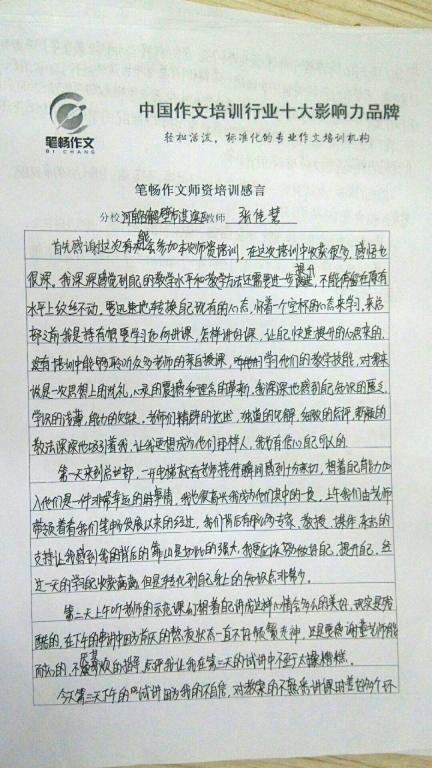 中国作文培训行业十大影响力品牌
笔畅作文
BI CHANG
轻松活泼,标准化的专业作文培训机构
笔畅作文师资培训感言
分校 教师
首先感谢这次有机会参加本次师资培训,在这次培训中收获很多,感悟也
很深。我深深感觉到自己的教学水平和教学方法还需要进一步提升,不能停留在原有
水平上纹丝不动。要迅速地转换自己现有的心态,怀着一个空杯的心态来学习。来总
部之前我是持有想要学习如何讲课,怎样讲好课,让自己快速提升的心思来的。
没有培训中能够聆听众多老师的亲自授课,学习他们的教学技能,对我来
说是一次思想上的洗礼,心灵的震撼和理念的革新,我深深地感到自己知识的匮乏
学识的浅薄,能力的欠缺。老师们精辟的论述,独道的见解,细致的点评,新颖的
教法深深地吸引着我,让我更想成为他们那样人,我也有信心自己可以的
第一天来到总部,一开电梯就有老师接待瞬间感到十分亲切,想着自己能力加
入他们是一件非常幸运的事情,我也很高兴我成为他们其中的一员,上午我们由老师
带领着看我们笔畅发展以来的经过,我们背后有那么多专家、教授、
支持让我感到我的背后的靠山是如此的强大,我更应该努力做好自己,提升自己,经
过一天的学习收获满满,但是转化到自己身上的知识点非常少。
第二天上午听老师的示范课幻想着自己讲成这样心情会多么的美好,现实是残
酷的,在下午的串讲中因为前天的
而知心的,的指导,点评我让我在第三天的试讲中不至于太糟糕。
今天第三天下午的试讲因为我的不自信,对教案的不熟悉讲课时差